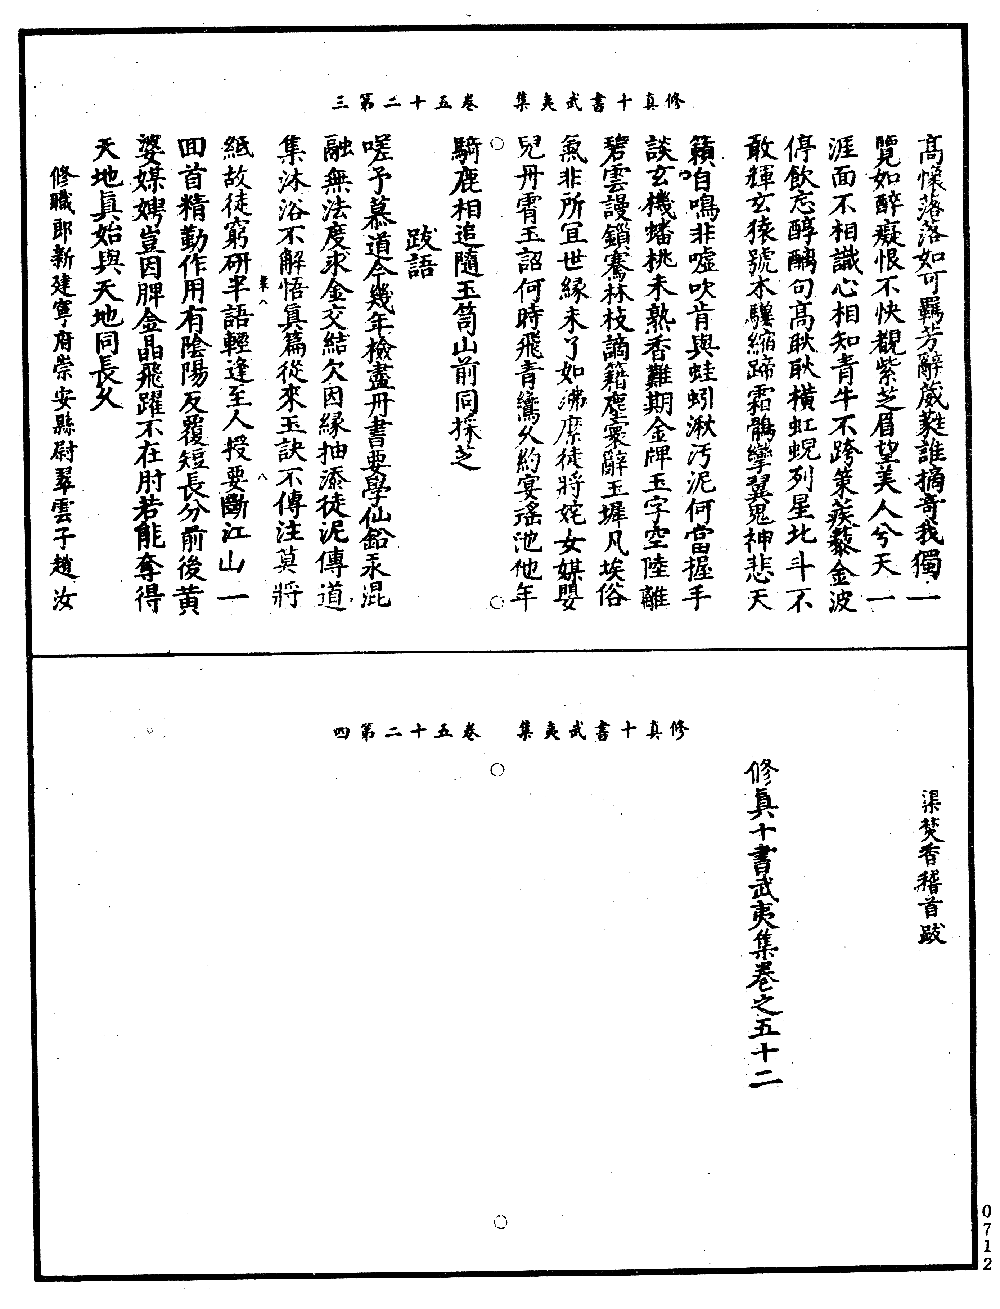 修真十書武夷集　卷五十二第三
高懷落落如可羈芳辭葳蕤誰摛奇我獨一
覽如醉癡恨不快覩紫芝眉望美人兮天一
涯面不相識心相知青牛不跨策蒺藜金波
停飲忘醇醨句高耿耿橫虹蜺列星北斗不
敢輝玄猿號木驥縮蹄霜鶻攣翼鬼神悲天
籟自鳴非噓吹肯與蛙蚓湫汚泥何當握手
談玄機蟠桃未熟香難期金牌玉字空陸離
碧雲謾鎖騫林枝謫籍塵寰辭玉墀凡埃俗
氣非所宜世緣未了如沸糜徒將姹女媒嬰
兒丹霄玉詔何時飛青鸞久約宴瑤池他年
騎鹿相追隨玉笥山前同採芝
跋語
嗟予慕道今幾年檢盡丹書要學仙鉛汞混
融無法度求金交結欠因緣抽添徒泥傳道
集沐浴不解悟真篇從來玉訣不傳注莫將
紙故徒窮研半語輕逢至人授要斷江山一
回首精勤作用有陰陽反覆短長分前後黃
婆媒娉豈因脾金晶飛躍不在肘若能奪得
天地真始與天地同長久
修職郎新建寧府崇安縣尉翠雲子趙汝
修真十書武夷集　卷五十二第四
渠焚香稽首跋
修真十書武夷集卷之五十二
0712